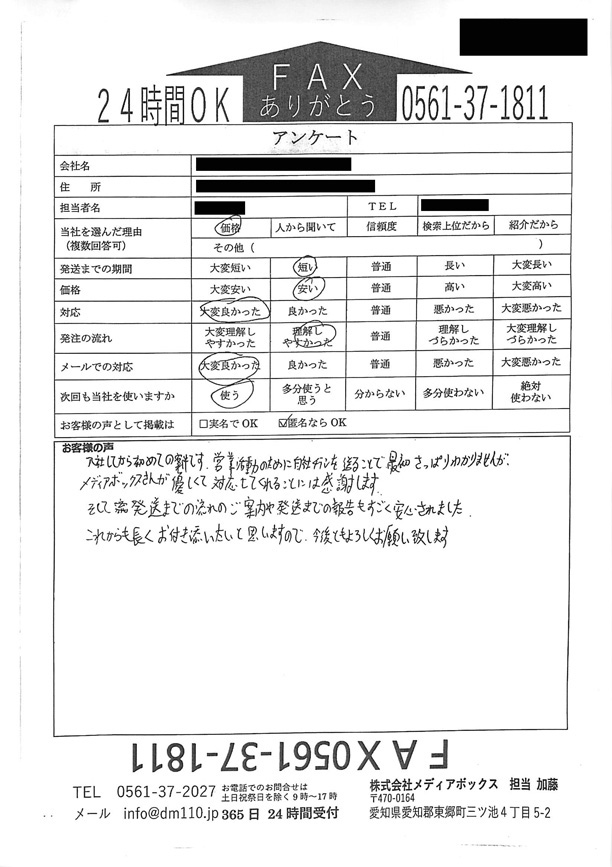 FAX
ありがとう
24時間OK
0561-37-1811
アンケート
会社名
住 所
担当者名 TEL
当社を選んだ理由（複数回答可） 価格 人から聞いて 信頼度 検索上位だから 紹介だから
その他（ ）
発送までの期間 大変短い 短い 普通 長い 大変長い
価格 大変安い 安い 普通 高い 大変高い
対応 大変良かった 良かった 普通 悪かった 大変悪かった
発注の流れ 大変理解しやすかった 理解しやすかった 普通 理解しづらかった 大変理解しづらかった
メールでの対応 大変良かった 良かった 普通 悪かった 大変悪かった
次回も当社を使いますか 使う 多分使うと思う 分からない 多分使わない 絶対使わない
お客様の声として掲載は □実名でOK ☑匿名ならOK
お客様の声
入社してから初めての案件です。営業活動のために自社チラシを送ることで最初さっぱりわかりませんが、
メディアボックスさんが優しくて対応してくれることには感謝します。
そして発送までの流れのご案内や発送までの報告もすごく安心されました。
これからも長くお付き添いたいと思いますので、今後ともよろしくお願い致します
FAX0561-37-1811
TEL 0561-37-2027 お電話でのお問合せは
土日祝祭日を除く9時～17時
メール info@dm110.jp 365日 24時間受付
株式会社メディアボックス 担当 加藤
〒470-0164
愛知県愛知郡東郷町三ツ池4丁目5-2